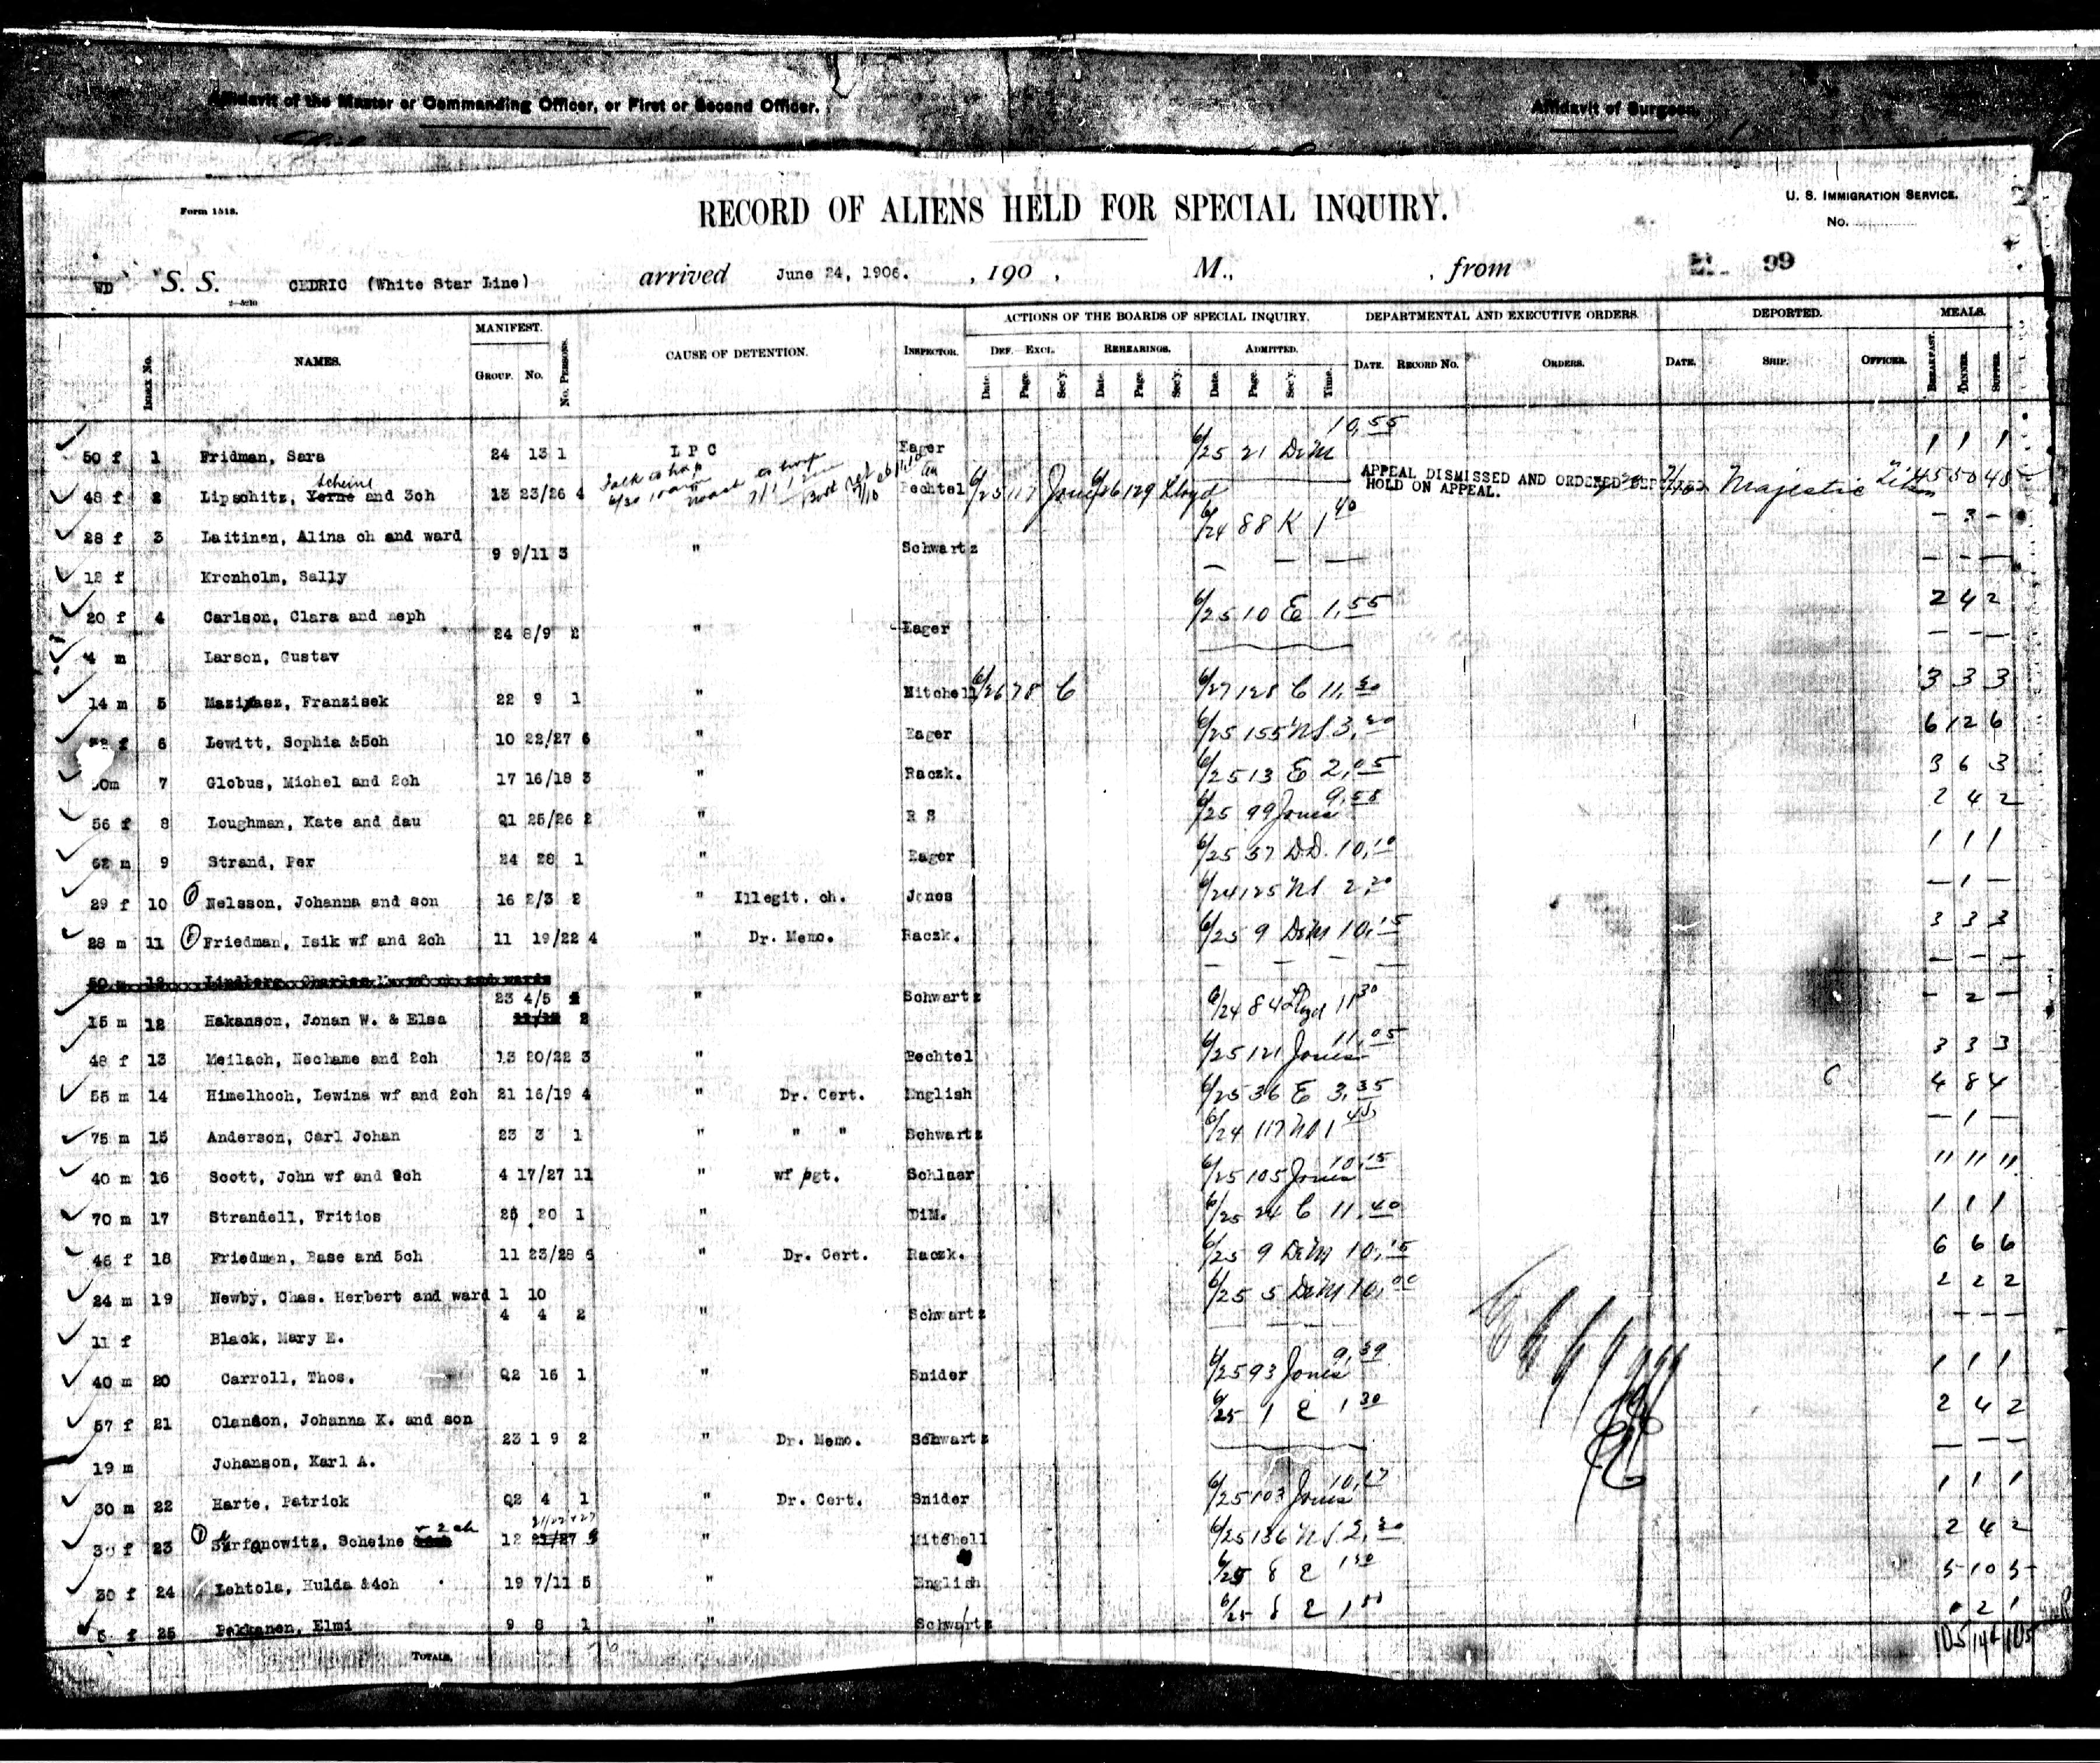 Affidavit of the Master or Commanding Officer, or First or Second Officer.
Affidavit of Surgeon.
Form 1518.
RECORD OF ALIENS HELD FOR SPECIAL INQUIRY.
U. S. IMMIGRATION SERVICE.
No.
WD S. S. CEDRIC (White Star Line) arrived June 24, 1906. , 190 , M., , from 99
INDEX NO. NAMES. MANIFEST. GROUP. NO. NO. PERSONS. CAUSE OF DETENTION. INSPECTOR. ACTIONS OF THE BOARDS OF SPECIAL INQUIRY. DEF. EXCL. Date. Page. Sec'y. REHEARINGS. Date. Page. Sec'y. ADMITTED. Date. Page. Sec'y. Time. DEPARTMENTAL AND EXECUTIVE ORDERS. DATE. RECORD NO. ORDERS. DEPORTED. DATE. SHIP. OFFICER. MEALS. BREAKFAST. DINNER. SUPPER.
50 f 1 Fridman, Sara 24 13 1 L P C Eager 6/25 21 DiM 10,55 1 1 1
Scheine
48 f 2 Lipschitz, Yerne and 3ch 13 23/26 4 Bechtel 6/25 117 Jones 6/26 129 Lloyd APPEAL DISMISSED AND ORDERED DEP Majestic 45 50 48
HOLD ON APPEAL.
28 f 3 Laitinen, Alina ch and ward 9 9/11 3 " Schwartz 6/24 88 K 1 40 - 3 -
12 f Kronholm, Sally — — —
20 f 4 Carlson, Clara and neph 24 8/9 2 " Eager 6/25 10 E 1,55 2 4 2
4 m Larson, Gustav — — —
14 m 5 Franzisek 22 9 1 " Mitchell 6/26 78 C 6/27 128 C 11,30 3 3 3
f 6 Lewitt, Sophia &5ch 10 22/27 6 " Eager 6/25 155 NS 3,20 6 12 6
0m 7 Globus, Michel and 2ch 17 16/18 3 " Raczk. 6/25 13 E 2,05 3 6 3
56 f 8 Loughman, Kate and dau Q1 25/26 2 " R S 6/25 99 Jones 9,58 2 4 2
62 m 9 Strand, Per 24 28 1 " Eager 6/25 57 D.D. 10,10 1 1 1
29 f 10 Nelsson, Johanna and son 16 2/3 2 " Illegit. ch. Jones 6/24 125 NS 2,20 — 1 —
28 m 11 Friedman, Isik wf and 2ch 11 19/22 4 " Dr. Memo. Raczk. 6/25 9 DiM 10,15 3 3 3
50 m 12 Lindberg, Charles wf ch and wards — — —
15 m 12 Hakanson, Jonan W. & Elsa 23 4/5 2 " Schwartz 6/24 84 Lloyd 11 30 - 2 -
48 f 13 Meilach, Nechame and 2ch 13 20/22 3 " Bechtel 6/25 121 Jones 11,05 3 3 3
55 m 14 Himelhoch, Lewina wf and 2ch 21 16/19 4 " Dr. Cert. English 6/25 36 E 3,35 4 8 4
75 m 15 Anderson, Carl Johan 23 3 1 " " " Schwartz 6/24 117 NS 1 45 — 1 —
40 m 16 Scott, John wf and 9ch 4 17/27 11 " wf pgt. Schlaar 6/25 105 Jones 10,15 11 11 11
70 m 17 Strandell, Fritios 25 20 1 " DiM. 6/25 24 C 11,40 1 1 1
46 f 18 Friedman, Base and 5ch 11 23/28 6 " Dr. Cert. Raczk. 6/25 9 DiM 10,15 6 6 6
24 m 19 Newby, Chas. Herbert and ward 1 10 6/25 5 DiM 10,00 2 2 2
4 4 2 " Schwartz — — —
11 f Black, Mary E.
40 m 20 Carroll, Thos. Q2 16 1 " Snider 6/25 93 Jones 9,39 1 1 1
57 f 21 Olandon, Johanna K. and son 23 1 9 2 " Dr. Memo. Schwartz 6/25 1 E 1 30 2 4 2
19 m Johanson, Karl A. — — —
30 m 22 Harte, Patrick Q2 4 1 " Dr. Cert. Snider 6/25 103 Jones 10,17 1 1 1
f 23 Scheine + 2 ch 12 " Mitchell 6/25 136 NS 2,20 2 4 2
30 f 24 Lehtola, Hulda &4ch 19 7/11 5 " English 6/25 8 E 1 50 5 10 5
f 25 Pekkanen, Elmi 9 8 1 " Schwartz 6/25 8 E 1 50 2 1
TOTALS. 105 105